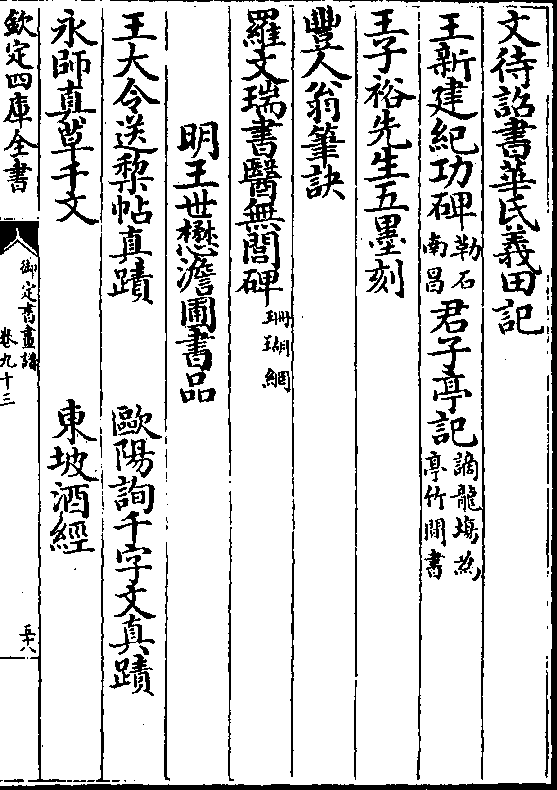 文待詔書華氏義田記
王新建紀功碑 勒石南昌 君子亭記 謫龍塲為亭竹閒書
王子裕先生五墨刻
豐人翁筆訣
羅文瑞書醫無閭碑 珊瑚網
明王世懋澹圃書品
王大令送棃帖真蹟 歐陽詢千字文真蹟
永師真草千文 東坡酒經
欽定四庫全書 御定書畫譜 卷九十三 五十八